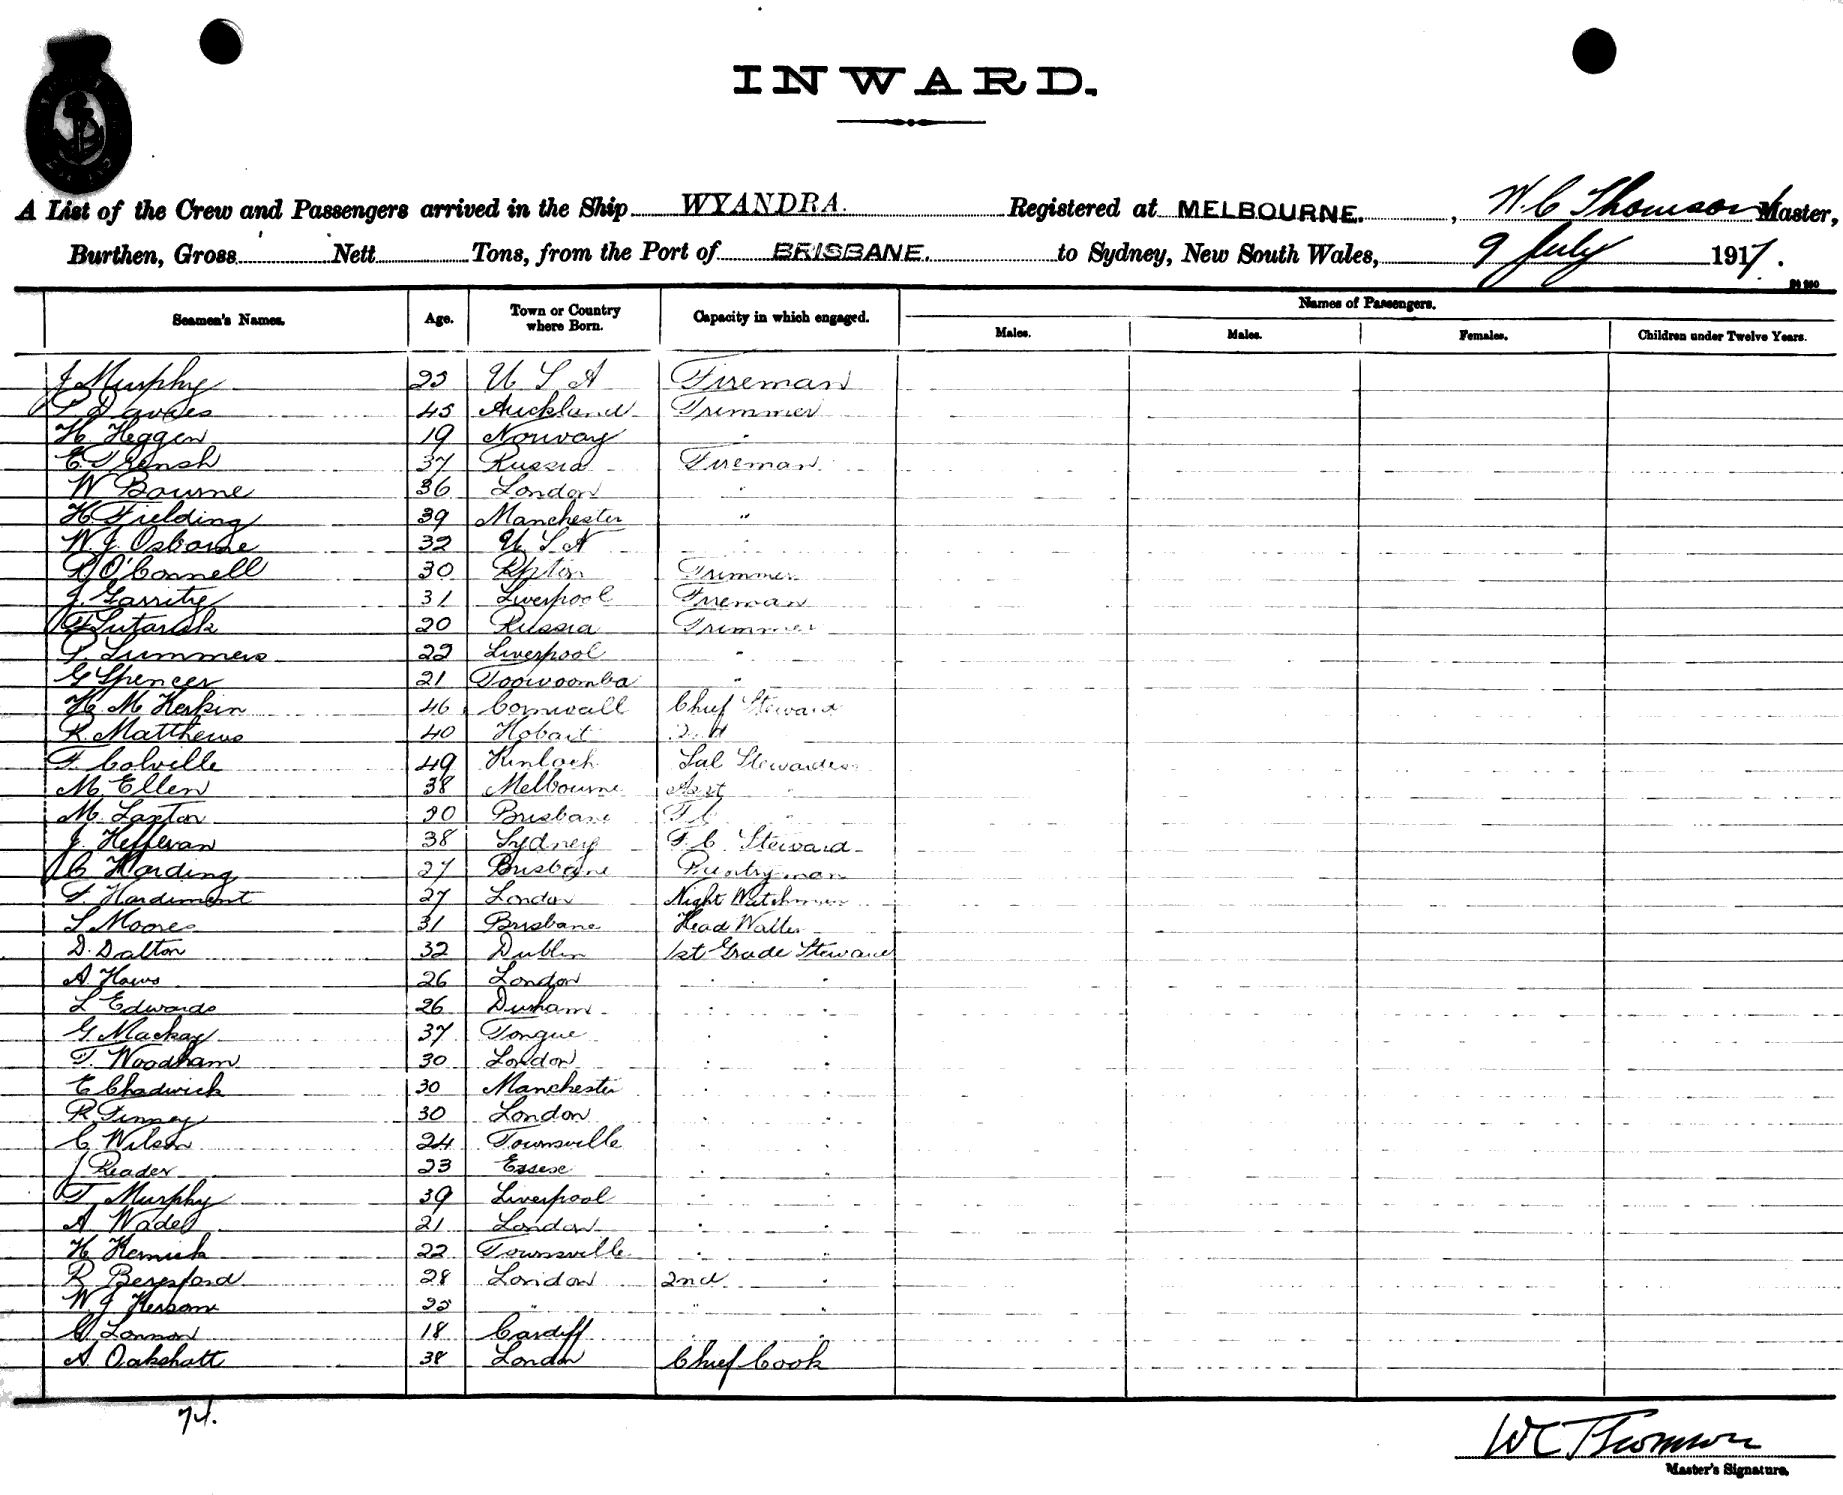 INWARD.
A List of the Crew and Passengers arrived in the Ship WYANDRA. Registered at MELBOURNE., W. C Thomson Master,
Burthen, Gross Nett Tons, from the Port of BRISBANE. to Sydney, New South Wales, 9 July 1917.
Seamen's Names. Age. Town or Country where Born. Capacity in which engaged. Names of Passengers.
Males. Males. Females. Children under Twelve Years.
J Murphy U S A Fireman
Davies 45 Auckland Trimmer
H. Heggen 19 Norway "
E. Trensh 37 Russia Fireman
W Bourne 36 London "
H. Fielding 39 Manchester "
W. J. Osborne 32 U S A "
O'Connell 30 Trimmer
J. Garrity 31 Liverpool Fireman
20 Russia Trimmer
P. Summers 22 Liverpool "
G Spencer 21 Toowoomba "
H. M Kerkin 46 Cornwall Chief Steward
R. Matthews 40 Hobart 2nd
F. Colville 49 Kinloch Sal Stewardess
M. Ellen 38 Melbourne Asst "
M. Laxton 20 Brisbane F C "
J. Heffevan 38 Sydney F. C. Steward
C Harding 27 Brisbane Pantryman
F. Hardiment 27 London Night Watchman
S Moores 31 Brisbane Head Waiter
D. Dalton 32 Dublin 1st Grade Steward
A. Haws 26 London " "
L Edwards 26 Durham " "
G Mackay 37 Tongue " "
T. Woodham 30 London " "
E Chadwick 30 Manchester " "
R Finney 30 London " "
C Wilson 24 Townsville " "
J Reader 23 Essex " "
T Murphy 39 Liverpool " "
A Wade 21 London " "
H Kernick 22 Townsville " "
R Beresford 28 London 2nd "
W. J Kersom " " "
Lonnon 18 Cardiff " "
A. Oakshatt 38 London Chief Cook
74.
W C Thomson
Master's Signature.